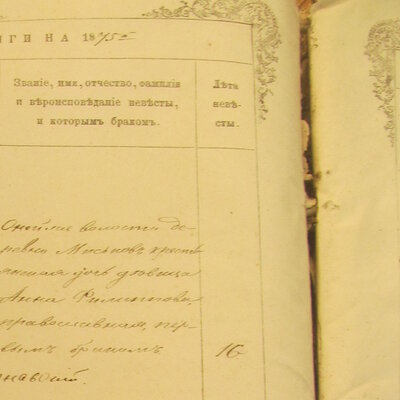 ИГИ НА 1875 г
Званіе, имя, отчество, фамилія
и вѣроисповѣданіе невѣсты,
и которымъ бракомъ.
Лѣта
невѣ-
сты.
волости де-
ревни кресть
янская дочь дѣвица
Анна Филиппова,
православная, пер-
вымъ бракомъ
16